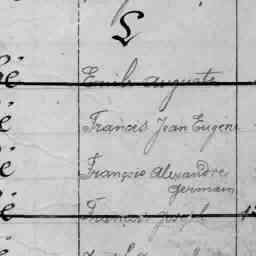 L
é Emile Auguste
é Francis Jean Eugene
é François Alexandre
Germain
é François Joseph
é